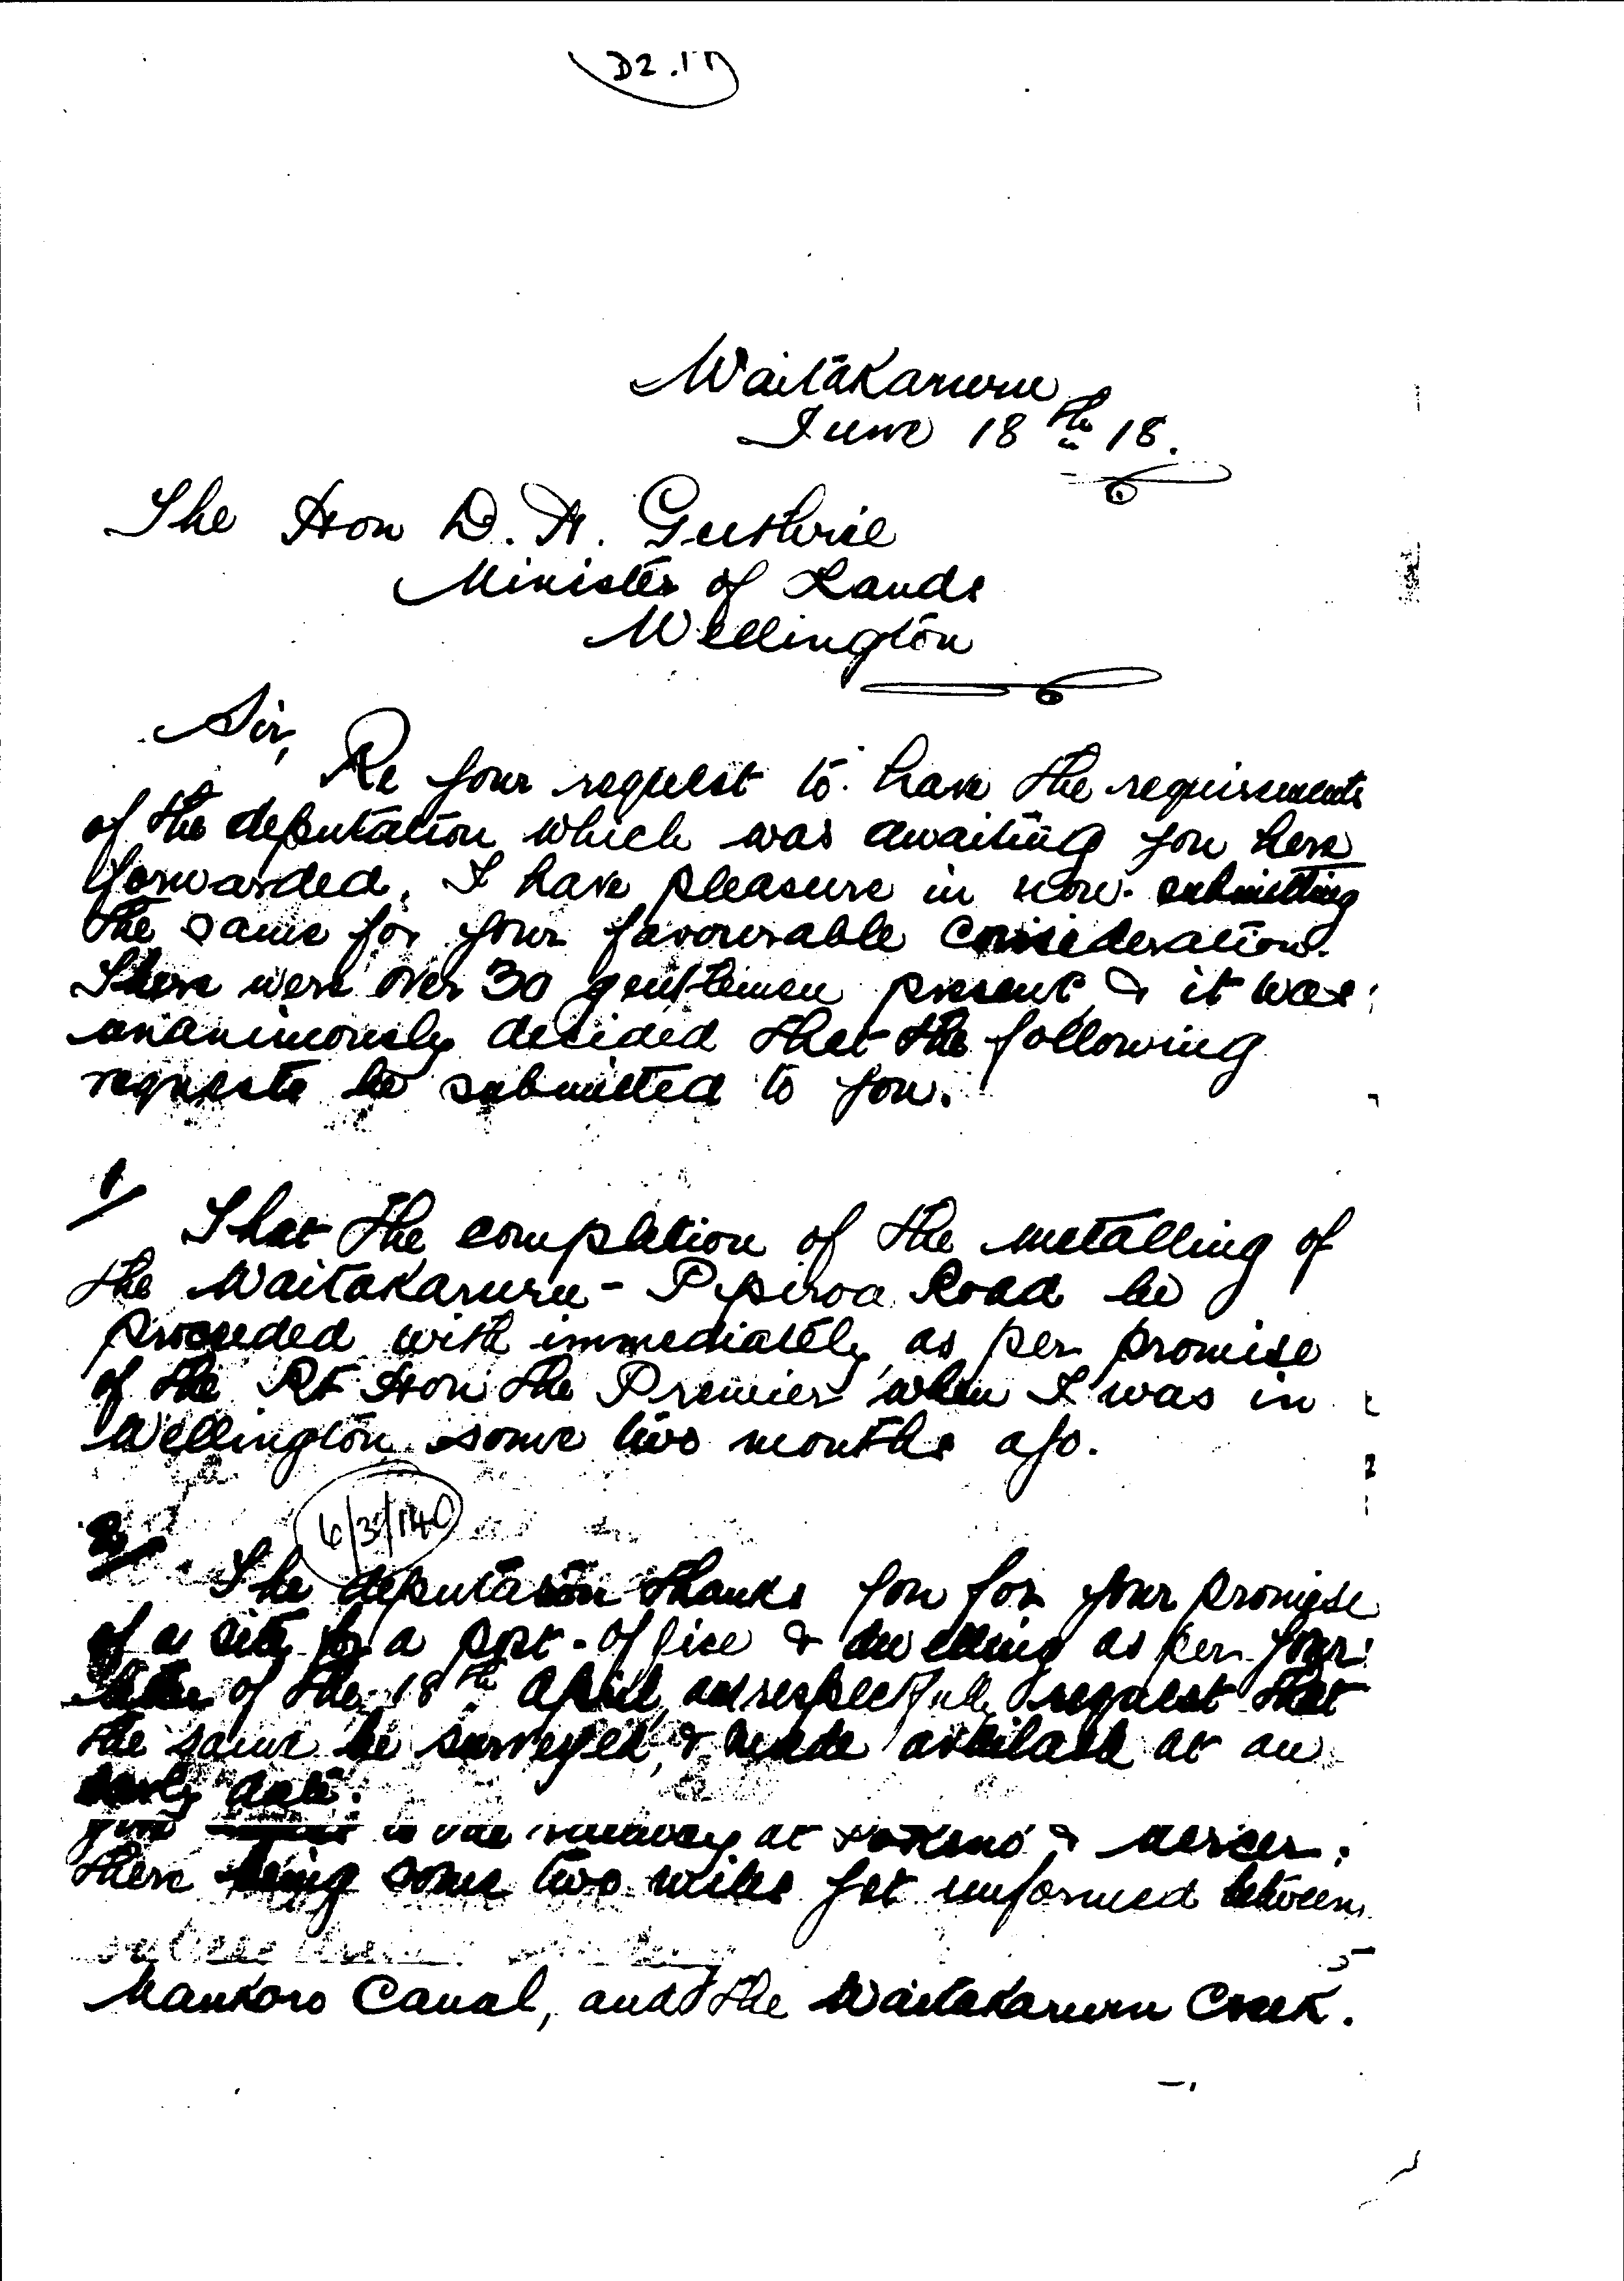 D2.17
Waitakaruru
June 18th 18.
The Hon D. H. Guthrie
Minister of Lands
Wellington
Sir,
Re your request to have the requirements
of the deputation which was awaiting you here
forwarded, I have pleasure in now submitting
the same for your favourable consideration.
There were over 30 gentlemen present, & it was
unanimously decided that the following
requests be submitted to you.
1/
That the completion of the metalling of
the Waitakaruru - Pipiroa Road be
proceeded with immediately, as per promise
of the Rt Hon the Premier when I was in
Wellington some two months ago.
6/3/140
2/
The deputation thanks you for your promise
of a site for a post-office & dwelling as per your
letter of the 18th April, and respectfully request that
the same be surveyed, & made available at an
early date.
to the railway at Pokeno & Mercer;
there being some two miles yet unformed between
Maukoro Canal, and the Waitakaruru Creek.